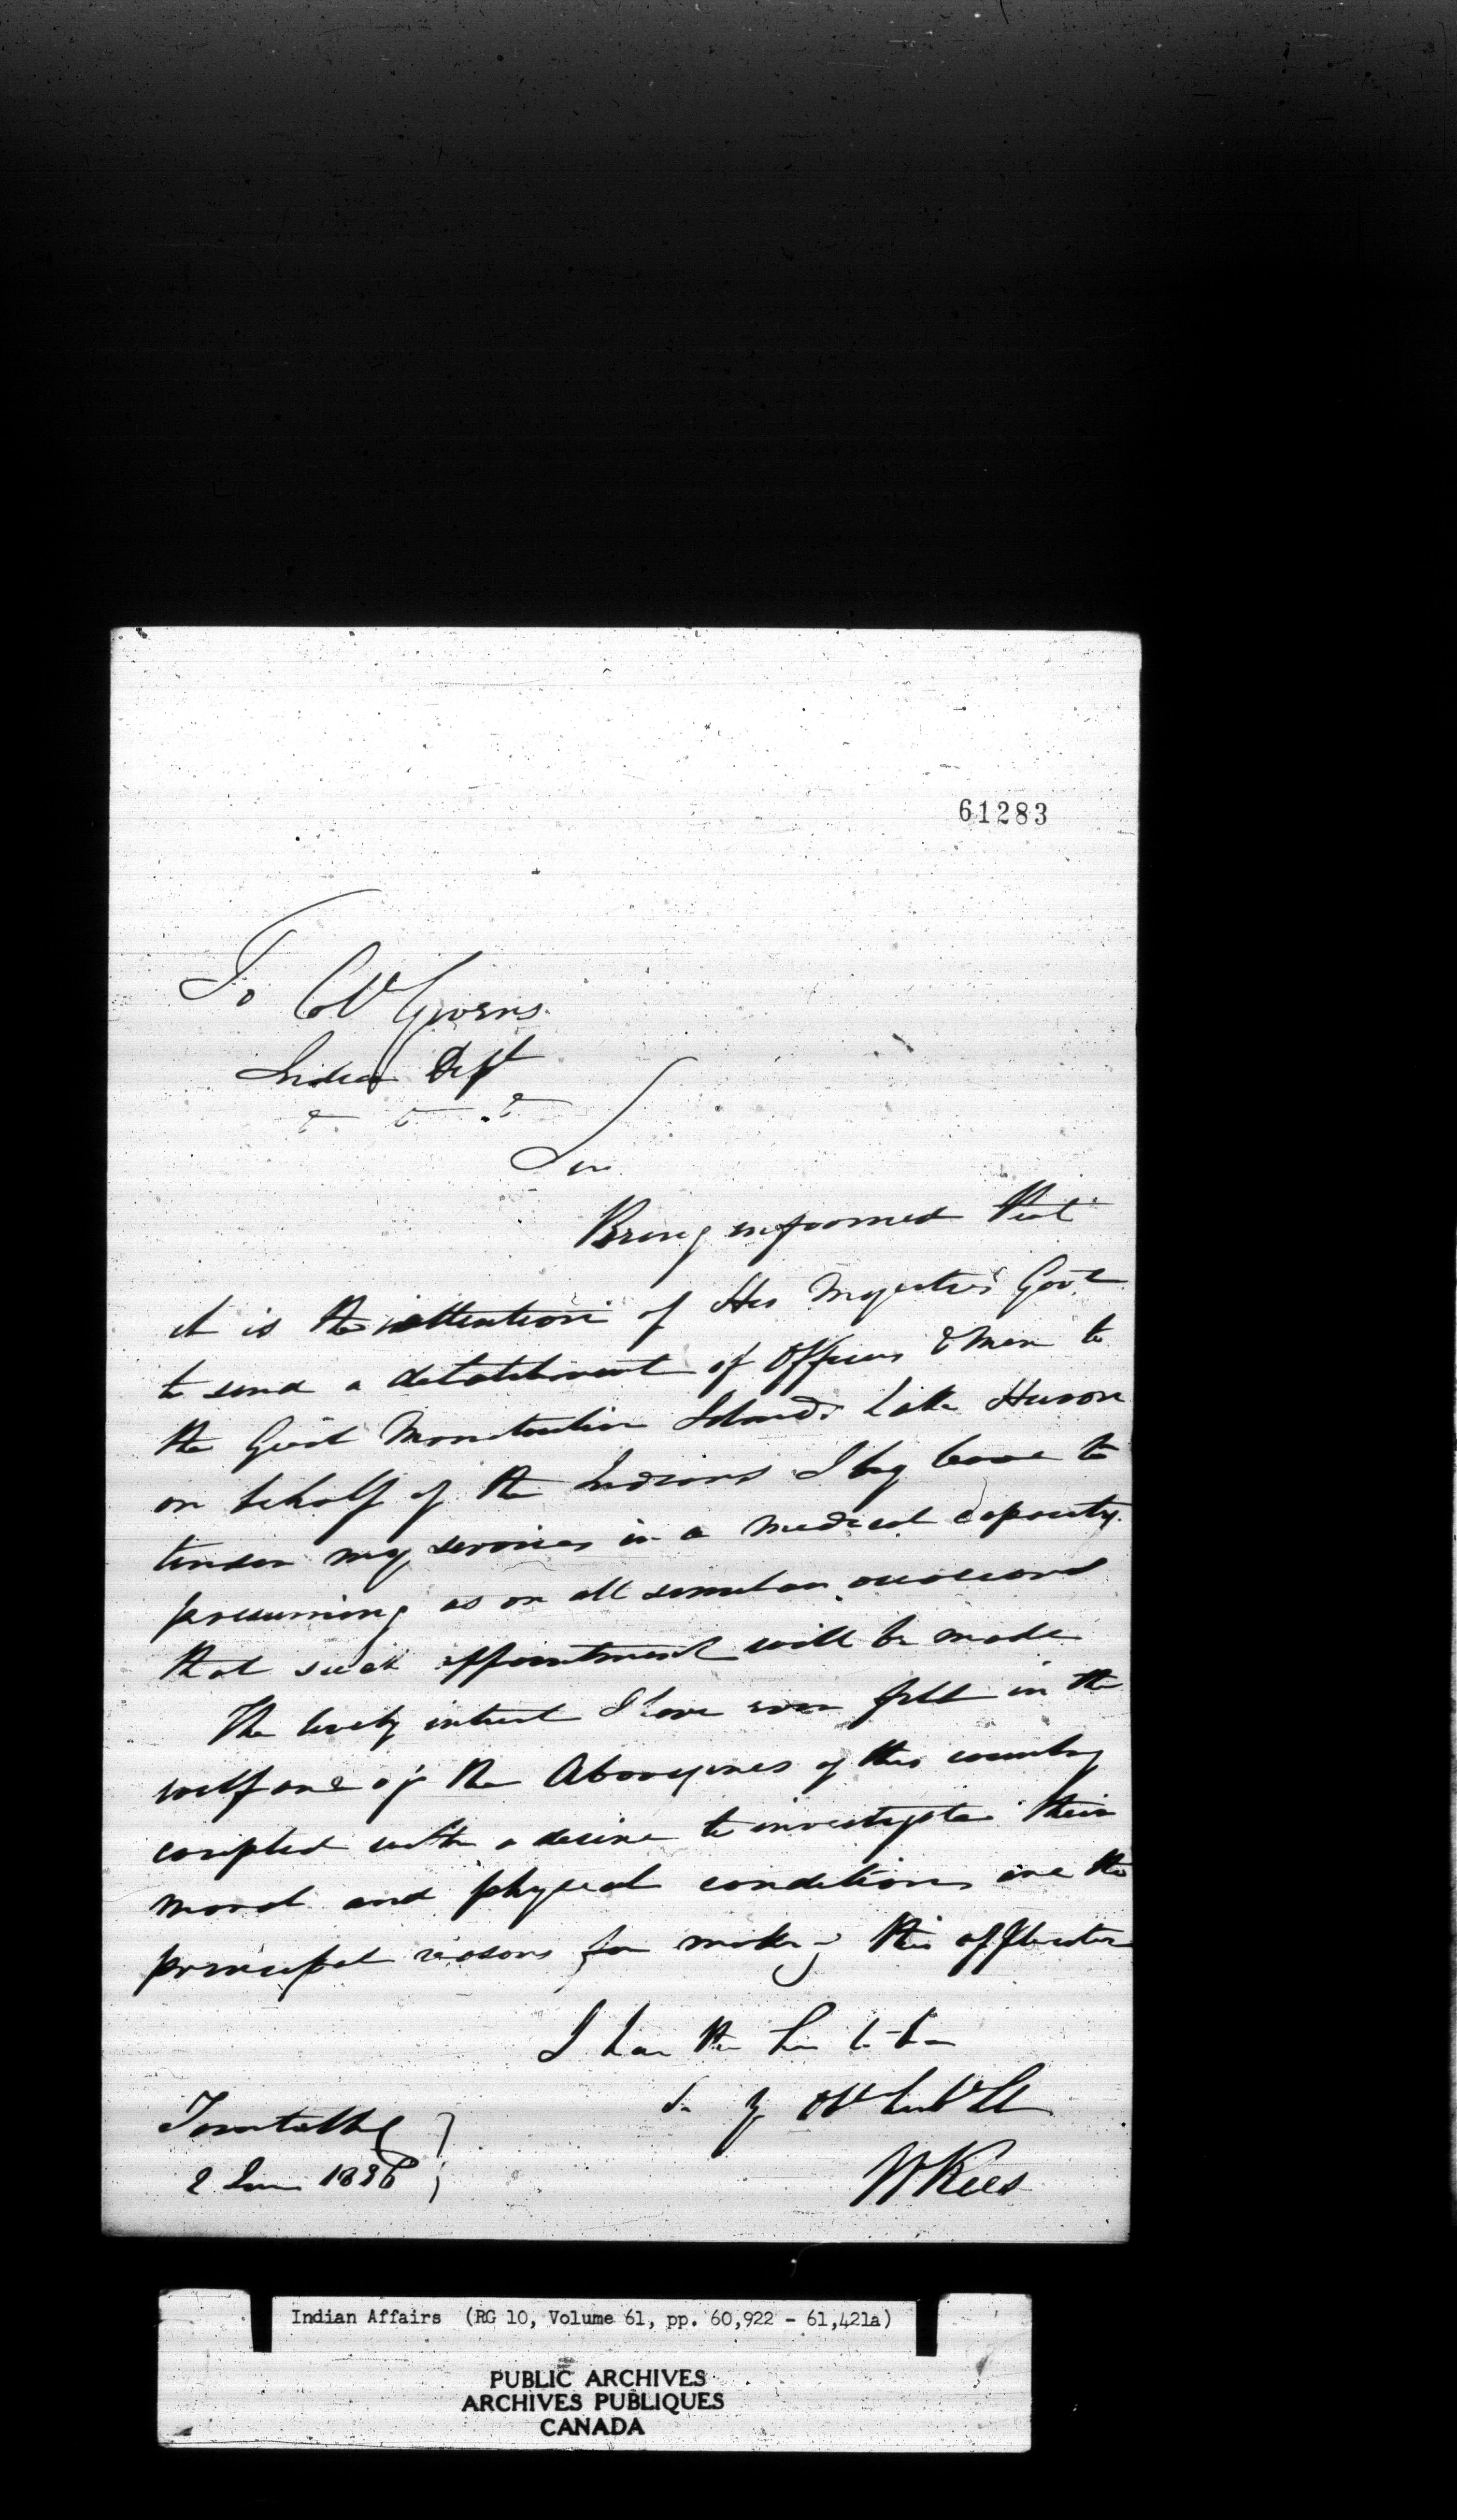 61283
To Col Givens.
Indian Dept
Sir
Being informed that
it is the intention of His Majesties Govt
to send a detatchment of Officers & Men to
the Great Manitoulin Islands Lake Huron
on behalf of the Indians I beg leave to
tender my services in a medical capacity.
presuming as on all similar occasions
that such appointment will be made
The lively interest I have ever felt in the
welfare of the Aborigines of this country
coupled with a desire to investigate their
moral and physical conditions are the
principal reasons for making this application
I have the Hon to be
Sr Yr Obt
Toronto
2 1836
W Rees
Indian Affairs (RG 10, Volume 61, pp. 60,922 - 61,421a)
PUBLIC ARCHIVES
ARCHIVES PUBLIQUES
CANADA